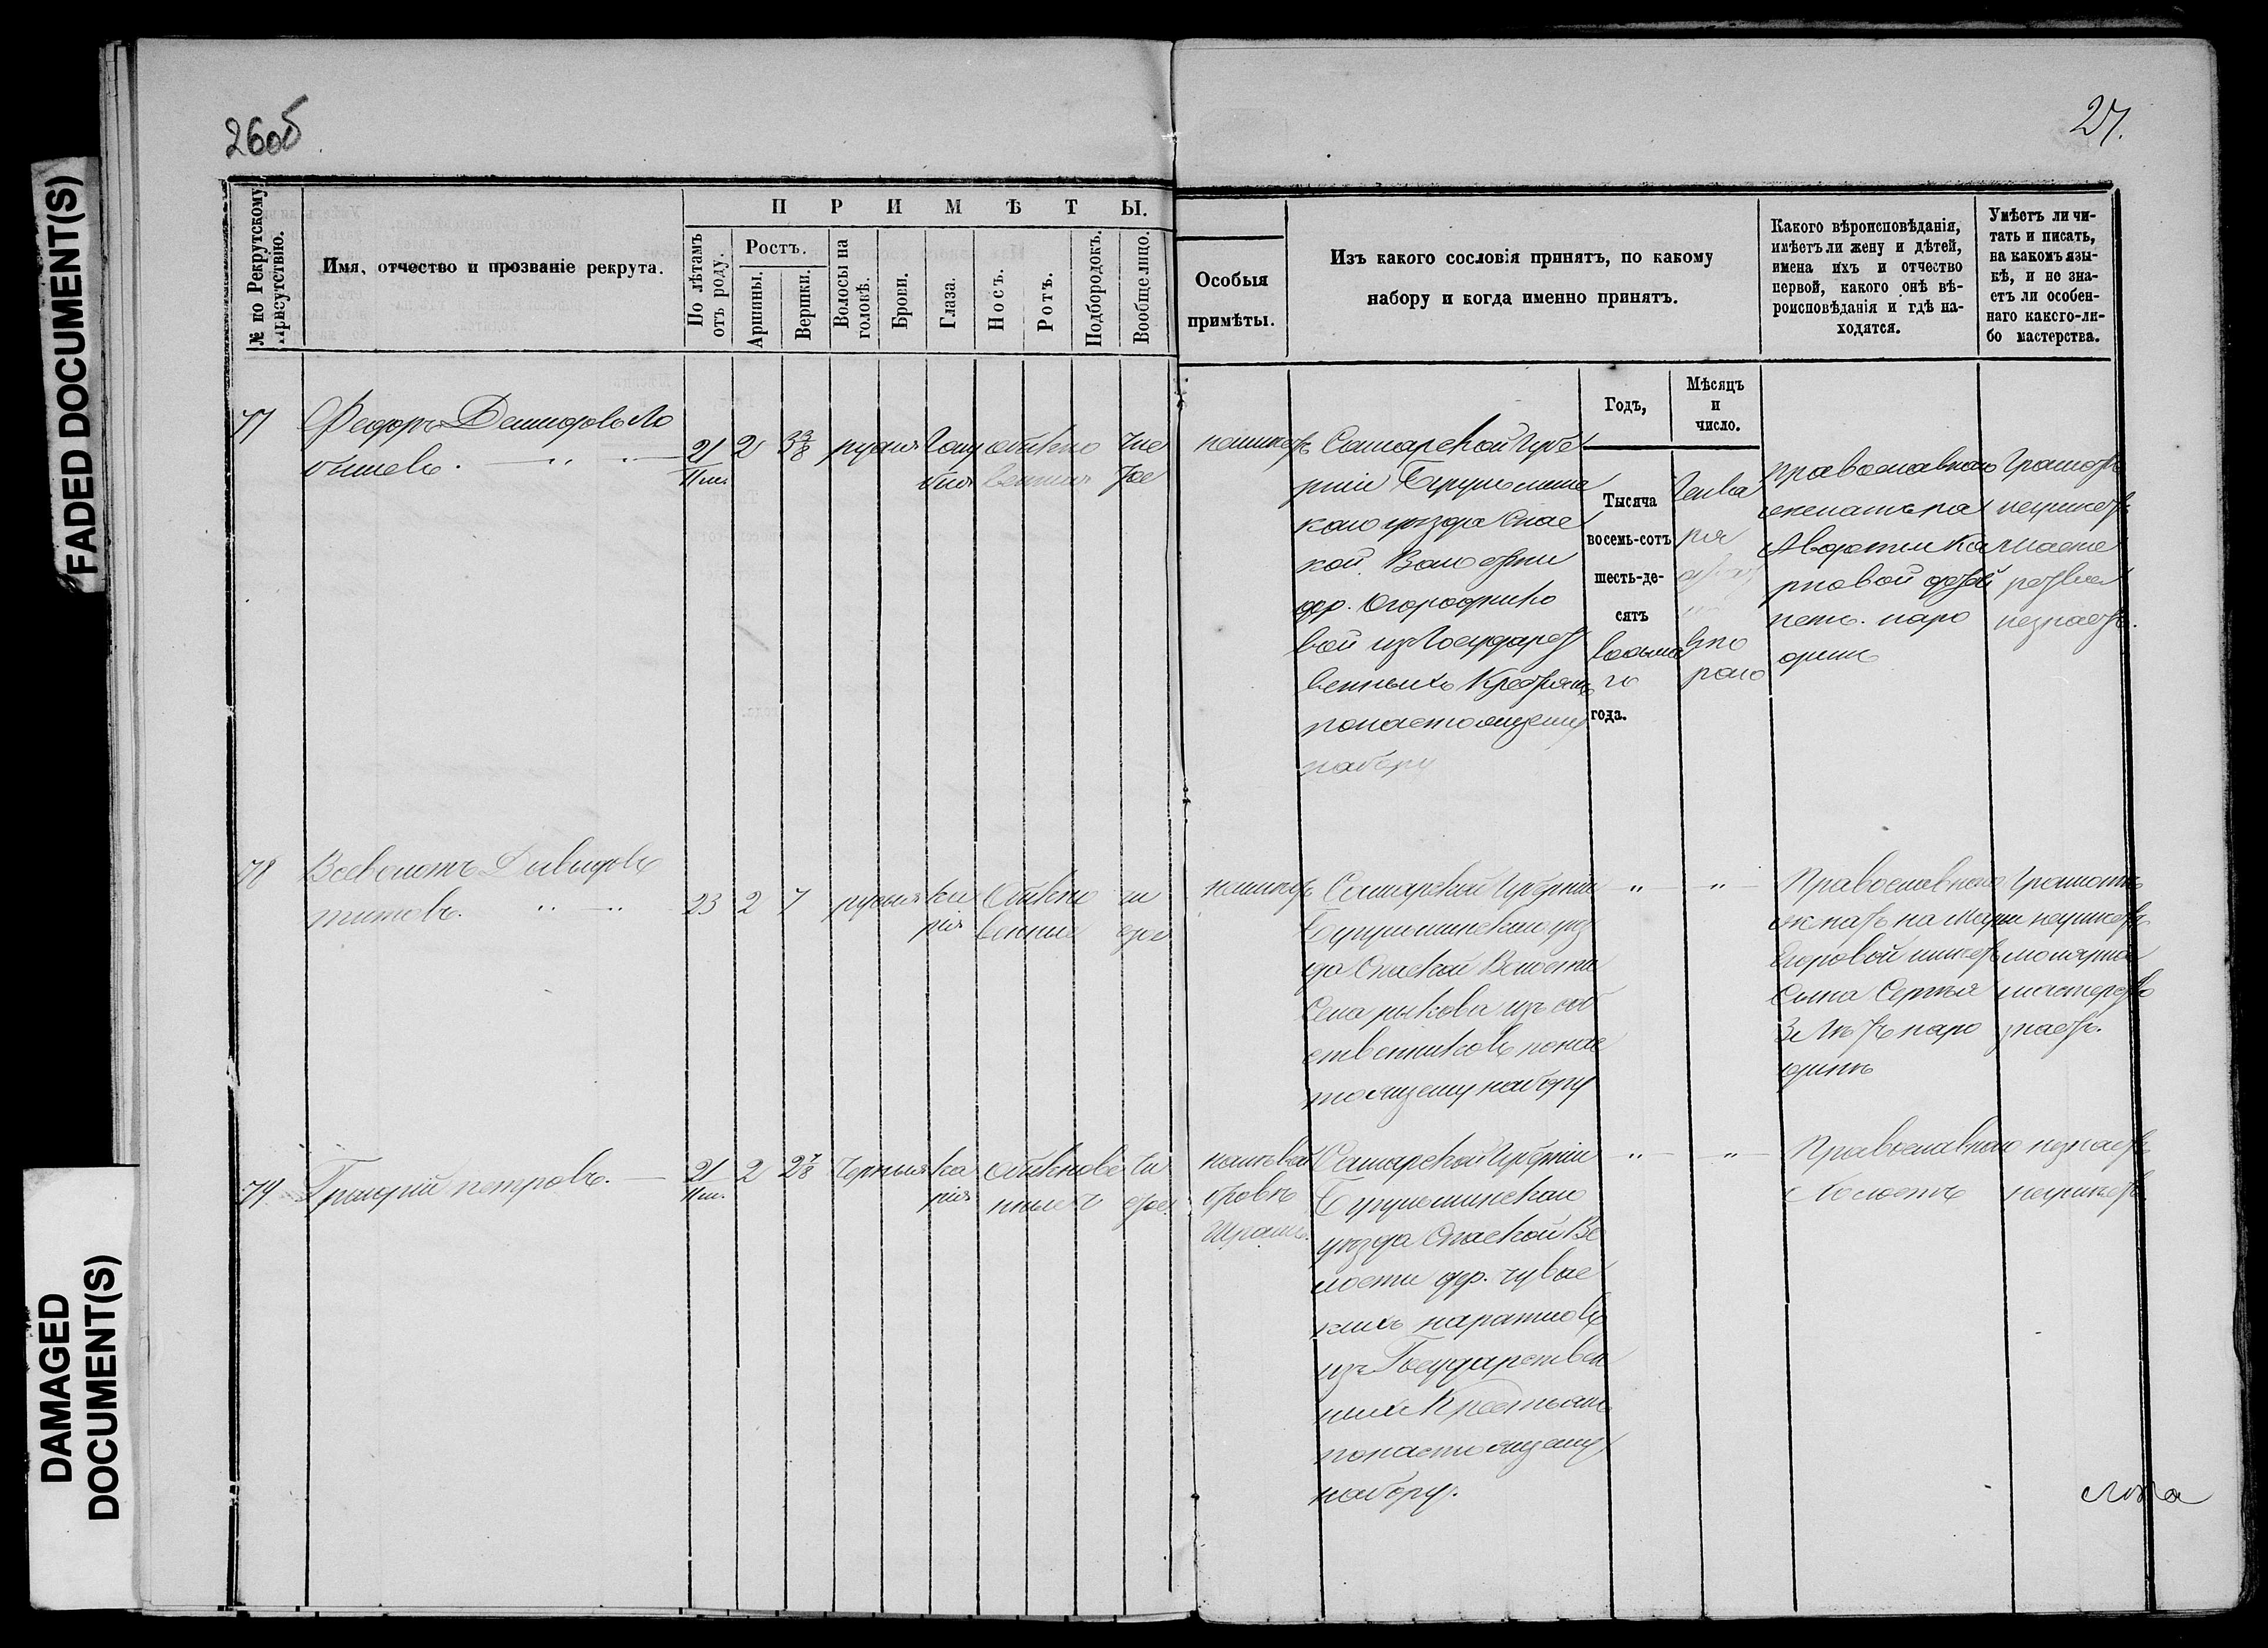 FADED DOCUMENT(S)
DAMAGED
DOCUMENT(S)
26об
27.
№ по Рекрутскому
присутствію.
Имя, отчество и прозваніе рекрута.
ПРИМѢТЫ.
По лѣтамъ
отъ роду.
Ростъ.
Аршины.
Вершки.
Волосы на
головѣ.
Брови.
Глаза.
Носъ.
Ротъ.
Подбородокъ.
Вообще лицо.
Особыя
примѣты.
Изъ какого сословія принятъ, по какому
набору и когда именно принятъ.
Какого вѣроисповѣданія,
имѣетъ ли жену и дѣтей,
имена ихъ и отчество
первой, какого онѣ вѣ-
роисповѣданія и гдѣ на-
ходятся.
Умѣетъ ли чи-
тать и писать,
на какомъ язы-
кѣ, и не зна-
етъ ли особен-
наго какого-ли-
бо мастерства.
Годъ,
Мѣсяцъ
и
число.
77
Федоръ Демидовъ Ло
бышевъ.
21
2 3 3/8
русыя
Голу
быя
обыкно
венныя
чис
тое
неимѣетъ
Самарской Губе
рніи Бугульмин
каго уѣзда Спас
кой Волости
дер. Огородників
вой изъ Государст
венныхъ Крестьянъ
понастоящему
набору
Тысяча
восемь-сотъ
шесть-де-
сятъ
восьма
го
года.
Генва
ря
вто
раго
Православнаго
женатъ на
Авдотьи Ка
рповой детей
нетъ. наро
дине
Грамотѣ
неумѣетъ
Мастер
ства
незнаетъ.
78
Давыдовъ
титовъ.
23 2 7
русыя
ка
рія
Обыкно
венные
чи
стое
неимѣетъ
Самарской Губерніи
Бугульминскаго уѣз
да Спаской Волости
Села рыкова изъ соб
ственниковъ понас
тоящему набору
Православнаго
женатъ на Марьи
Егоровой имѣетъ
Сына Сергѣя
3 Лѣтъ наро
динѣ
Грамотѣ
неумѣетъ
малярное
мастерство
знаетъ.
79
Григорій петровъ.
21
2 2 7/8
Черныя
ка
рія
обыкнове
нные
чи
стое
налѣвой
бровѣ
Шрамъ.
Самарской Губерніи
Бугульминскаго
уѣзда Спаской Во
лости дер. чувас
кихъ
изъ Государствен
ныхъ Крестьянъ
понастоящему
набору.
Православнаго
Холостъ
незнаетъ
неумѣетъ